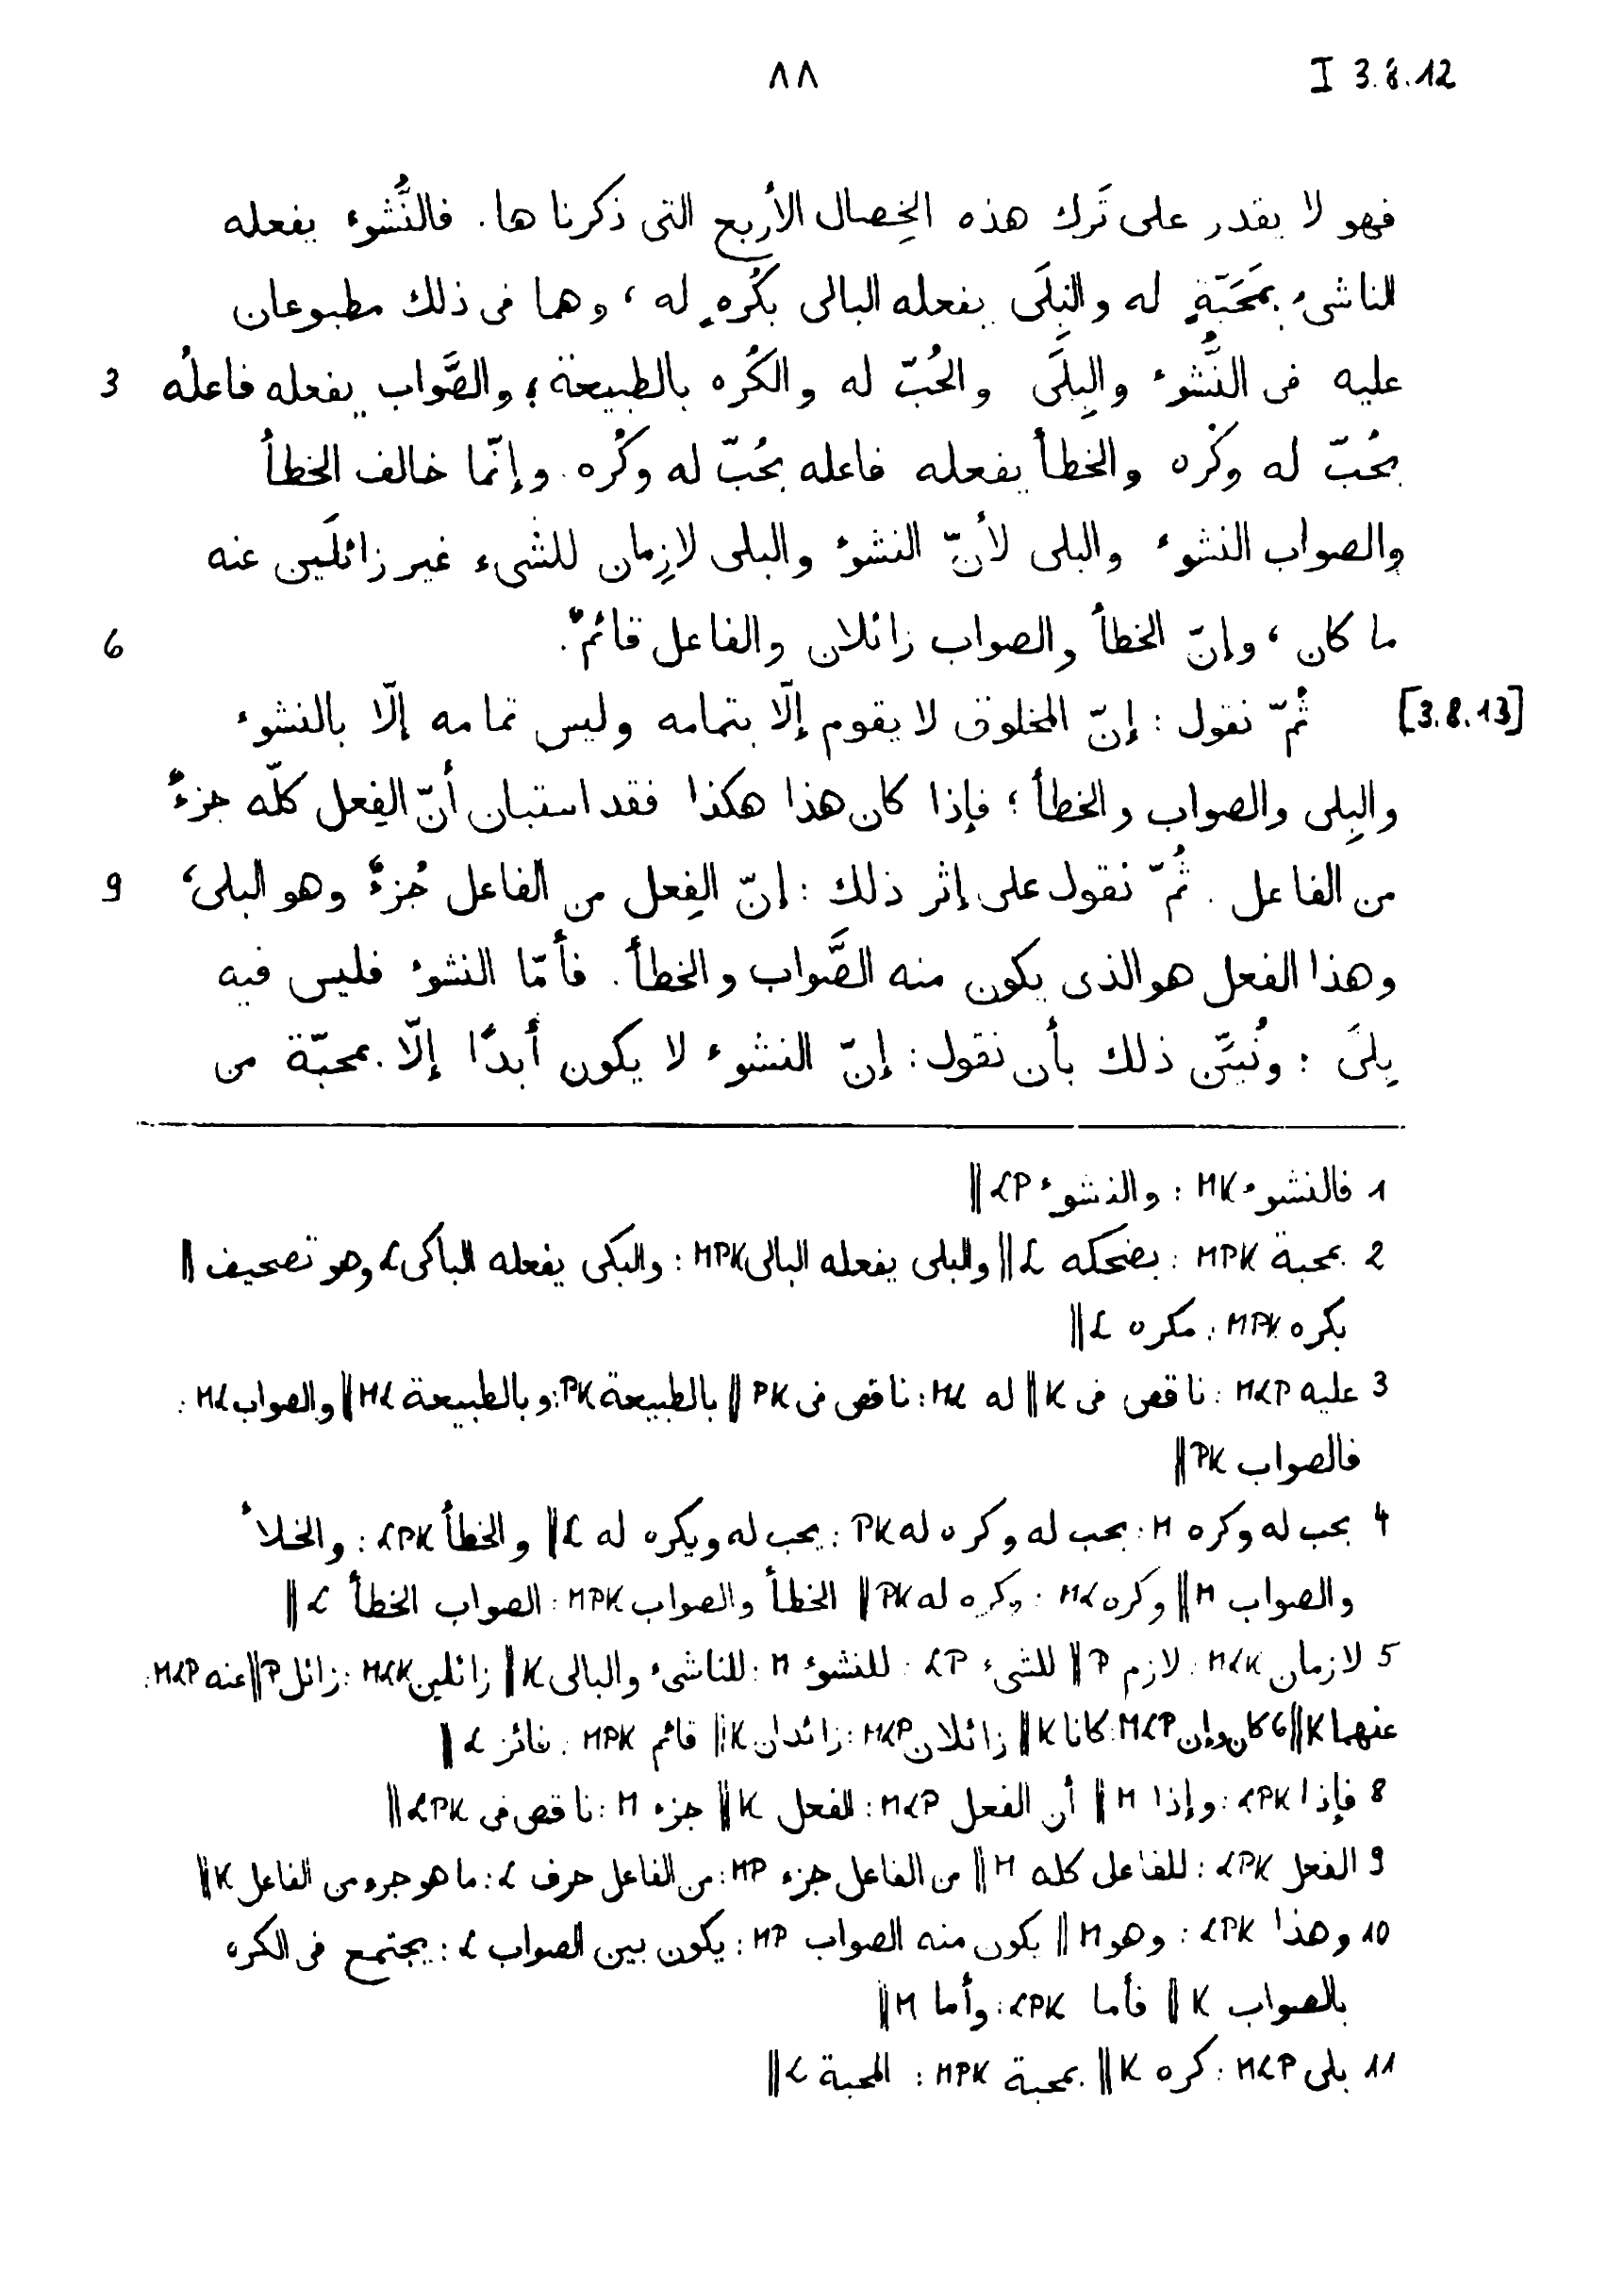 ٨٨
I 3.8.12
فهو لا يقدر على تَرك هذه الخِصال الأربع التى ذكرنا ها. فالنُّشوء يفعله
الناشىء بمَحَبَّةٍ له والبِلَى يفعله البالى بكُرهٍ له ، وهما فى ذلك مطبوعان
عليه فى النُّشوء والبِلَى والحُبّ له والكُره بالطبيعة ؛ والصَّواب يفعله فاعلُه 3
بحُبّ له وكُره والخطأ يفعله فاعله بحُبّ له وكُره. وإنّما خالف الخطأ
والصواب النشوء والبلى لأنّ النشوء والبلى لازِمان للشىء غير زائلَين عنه
ما كان ، وإنّ الخطأ والصواب زائلان والفاعل قائمٌ. 6
[3.8.13] ثُمّ نقول : إنّ المخلوق لا يقوم إلّا بتمامه وليس تمامه إلّا بالنشوء
والبِلى والصواب والخطأ ؛ فإذا كان هذا هكذا فقد استبان أنّ الفِعل كلّه جزءٌ
من الفاعل . ثُمّ نقول على إثر ذلك : إنّ الفِعل من الفاعل جُزءٌ وهو البلى ، 9
وهذا الفعل هو الذى يكون منه الصَّواب والخطأ. فأمّا النشوء فليس فيه
بِلىً : ونُبيّن ذلك بأن نقول : إنّ النشوء لا يكون أبدًا إلّا بمحبّة من
1 فالنشوء MK : والنشوء LP ||
2 بمحبة MPK : بضحكه L || والبلى يفعله البالى MPK : والبكى يفعله الباكى L وهو تصحيف ||
بكره MPK : مكره L ||
3 عليه MLP : ناقص فى K || له ML : ناقص فى PK || بالطبيعة PK : وبالطبيعة ML || والصواب ML :
فالصواب PK ||
4 بحب له وكره M : بحب له وكره له PK : يحب له ويكره له L || والخطأ LPK : والخلأ
والصواب M || وكره ML : وكره له PK || الخطأ والصواب MPK : الصواب الخطأ L ||
5 لازمان MLK : لازم P || للشىء LP : للنشوء M : للناشىء والبالى K || زائلين MLK : زائل P || عنه MLP :
عنهما K || 6 كان وإن MLP : كانا K || زائلان MLP : زائدان K || قائم MPK : فائز L ||
8 فإذا LPK : وإذا M || أن الفعل MLP : الفعل K || جزء M : ناقص فى LPK ||
9 الفعل LPK : للفاعل كله M || من الفاعل جزء MP : من الفاعل حرف L : ما هو جزء من الفاعل K ||
10 وهذا LPK : وهو M || يكون منه الصواب MP : يكون بين الصواب L : يجتمع فى الكره
بالصواب K || فأما LPK : وأما M ||
11 بلى MLP : كره K || بمحبة MPK : المحبة L ||